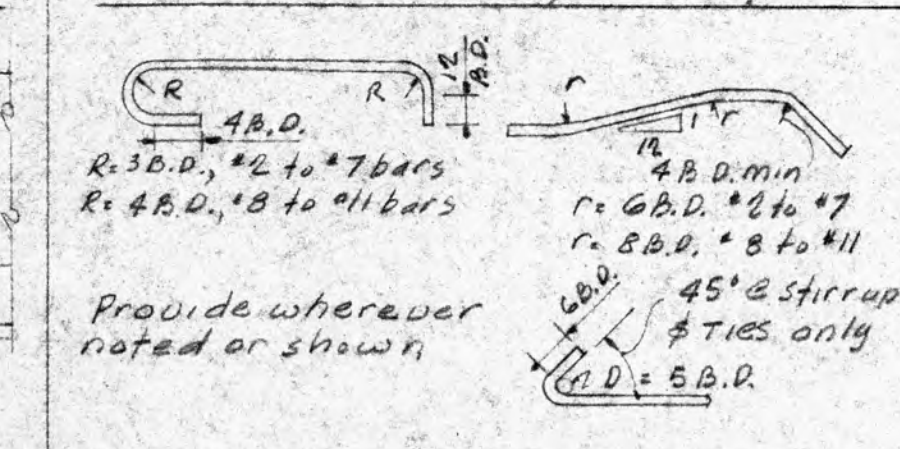 R
4B.D.
R
12
B.D.
R=3B.D., #2 to #7 bars
R=4B.D., #8 to #11 bars
Provide wherever
noted or shown
r
12
1
r
4B.D. min
r=6B.D. #2 to #7
r=8B.D. #8 to #11
6B.D.
45° @ stirrup
& Ties only
D = 5B.D.